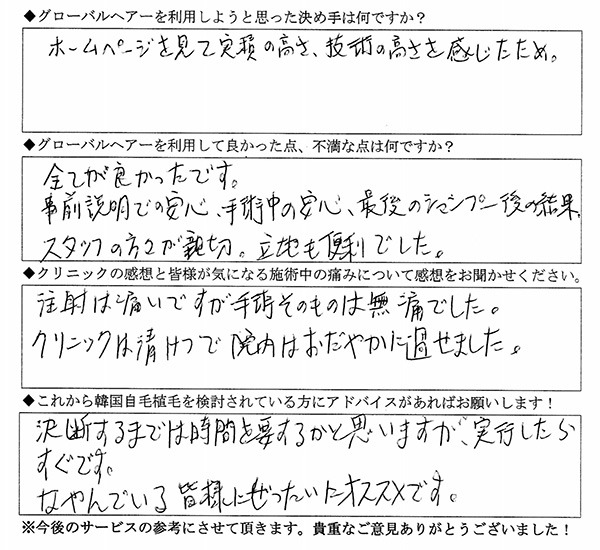 ◆グローバルヘアーを利用しようと思った決め手は何ですか？
ホームページを見て実積の高さ、技術の高さを感じたため。
◆グローバルヘアーを利用して良かった点、不満な点は何ですか？
全てが良かったです。
事前説明での安心、手術中の安心、最後のシャンプー後の結果。
スタッフの方々が親切。立地も便利でした。
◆クリニックの感想と皆様が気になる施術中の痛みについて感想をお聞かせください。
注射は痛いですが手術そのものは無痛でした。
クリニックは清けつで院内はおだやかに過せました。
◆これから韓国自毛植毛を検討されている方にアドバイスがあればお願いします！
決断するまでは時間を要するかと思いますが、実行したら
すぐです。
なやんでいる皆様にぜったいにオススメです。
※今後のサービスの参考にさせて頂きます。貴重なご意見ありがとうございました！